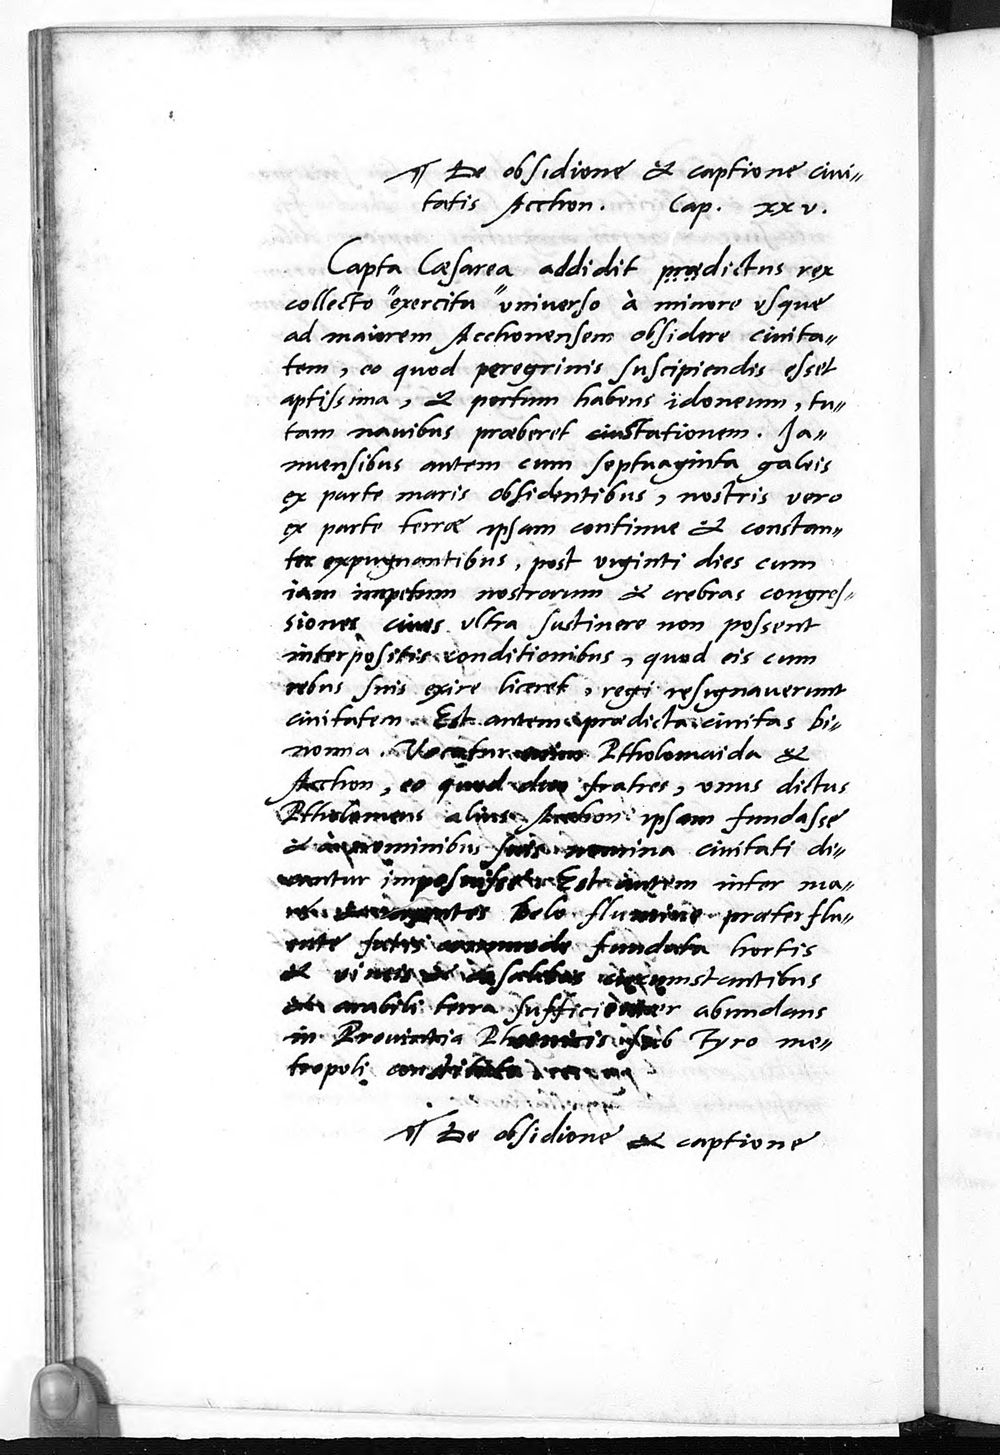 ¶ De obsidione & captione ciui=
tatis Acchon. Cap. xxv.
Capta Cæsarea addidit prædictus rex
collecto "exercitu "vniuerso à minore vsque
ad maiorem Acchonensem obsidere ciuita=
tem, eo quod peregrinis suscipiendis esset
aptissima, & portum habens idoneum, tu=
tam nauibus præberet stationem. Ja=
nuensibus autem cum septuaginta galeis
ex parte maris obsidentibus, nostris vero
ex parte terræ ipsam continue & constan=
ter expugnantibus, post viginti dies cum
iam impetum nostrorum & crebras congres=
siones ciues vltra sustinere non possent
interpositis conditionibus, quod eis cum
rebus suis exire liceret, regi resignauerunt
ciuitatem. Est autem prædicta ciuitas bi=
nomia. Vocatur enim Ptholomaida &
Acchon, eo quod duo fratres, vnus dictus
Ptholomeus alius Acchon ipsam fundasse
& à nominibus suis nomina ciuitati di=
cuntur imposuisse. Est autem inter ma=
re & montes Belo flumine præterflu=
ente satis commode fundata hortis
& vineis & casalibus circumstantibus
& arabili terra sufficienter abundans
in Prouintia Phenicis sub Tyro me=
tropoli constituta
¶ De obsidione & captione